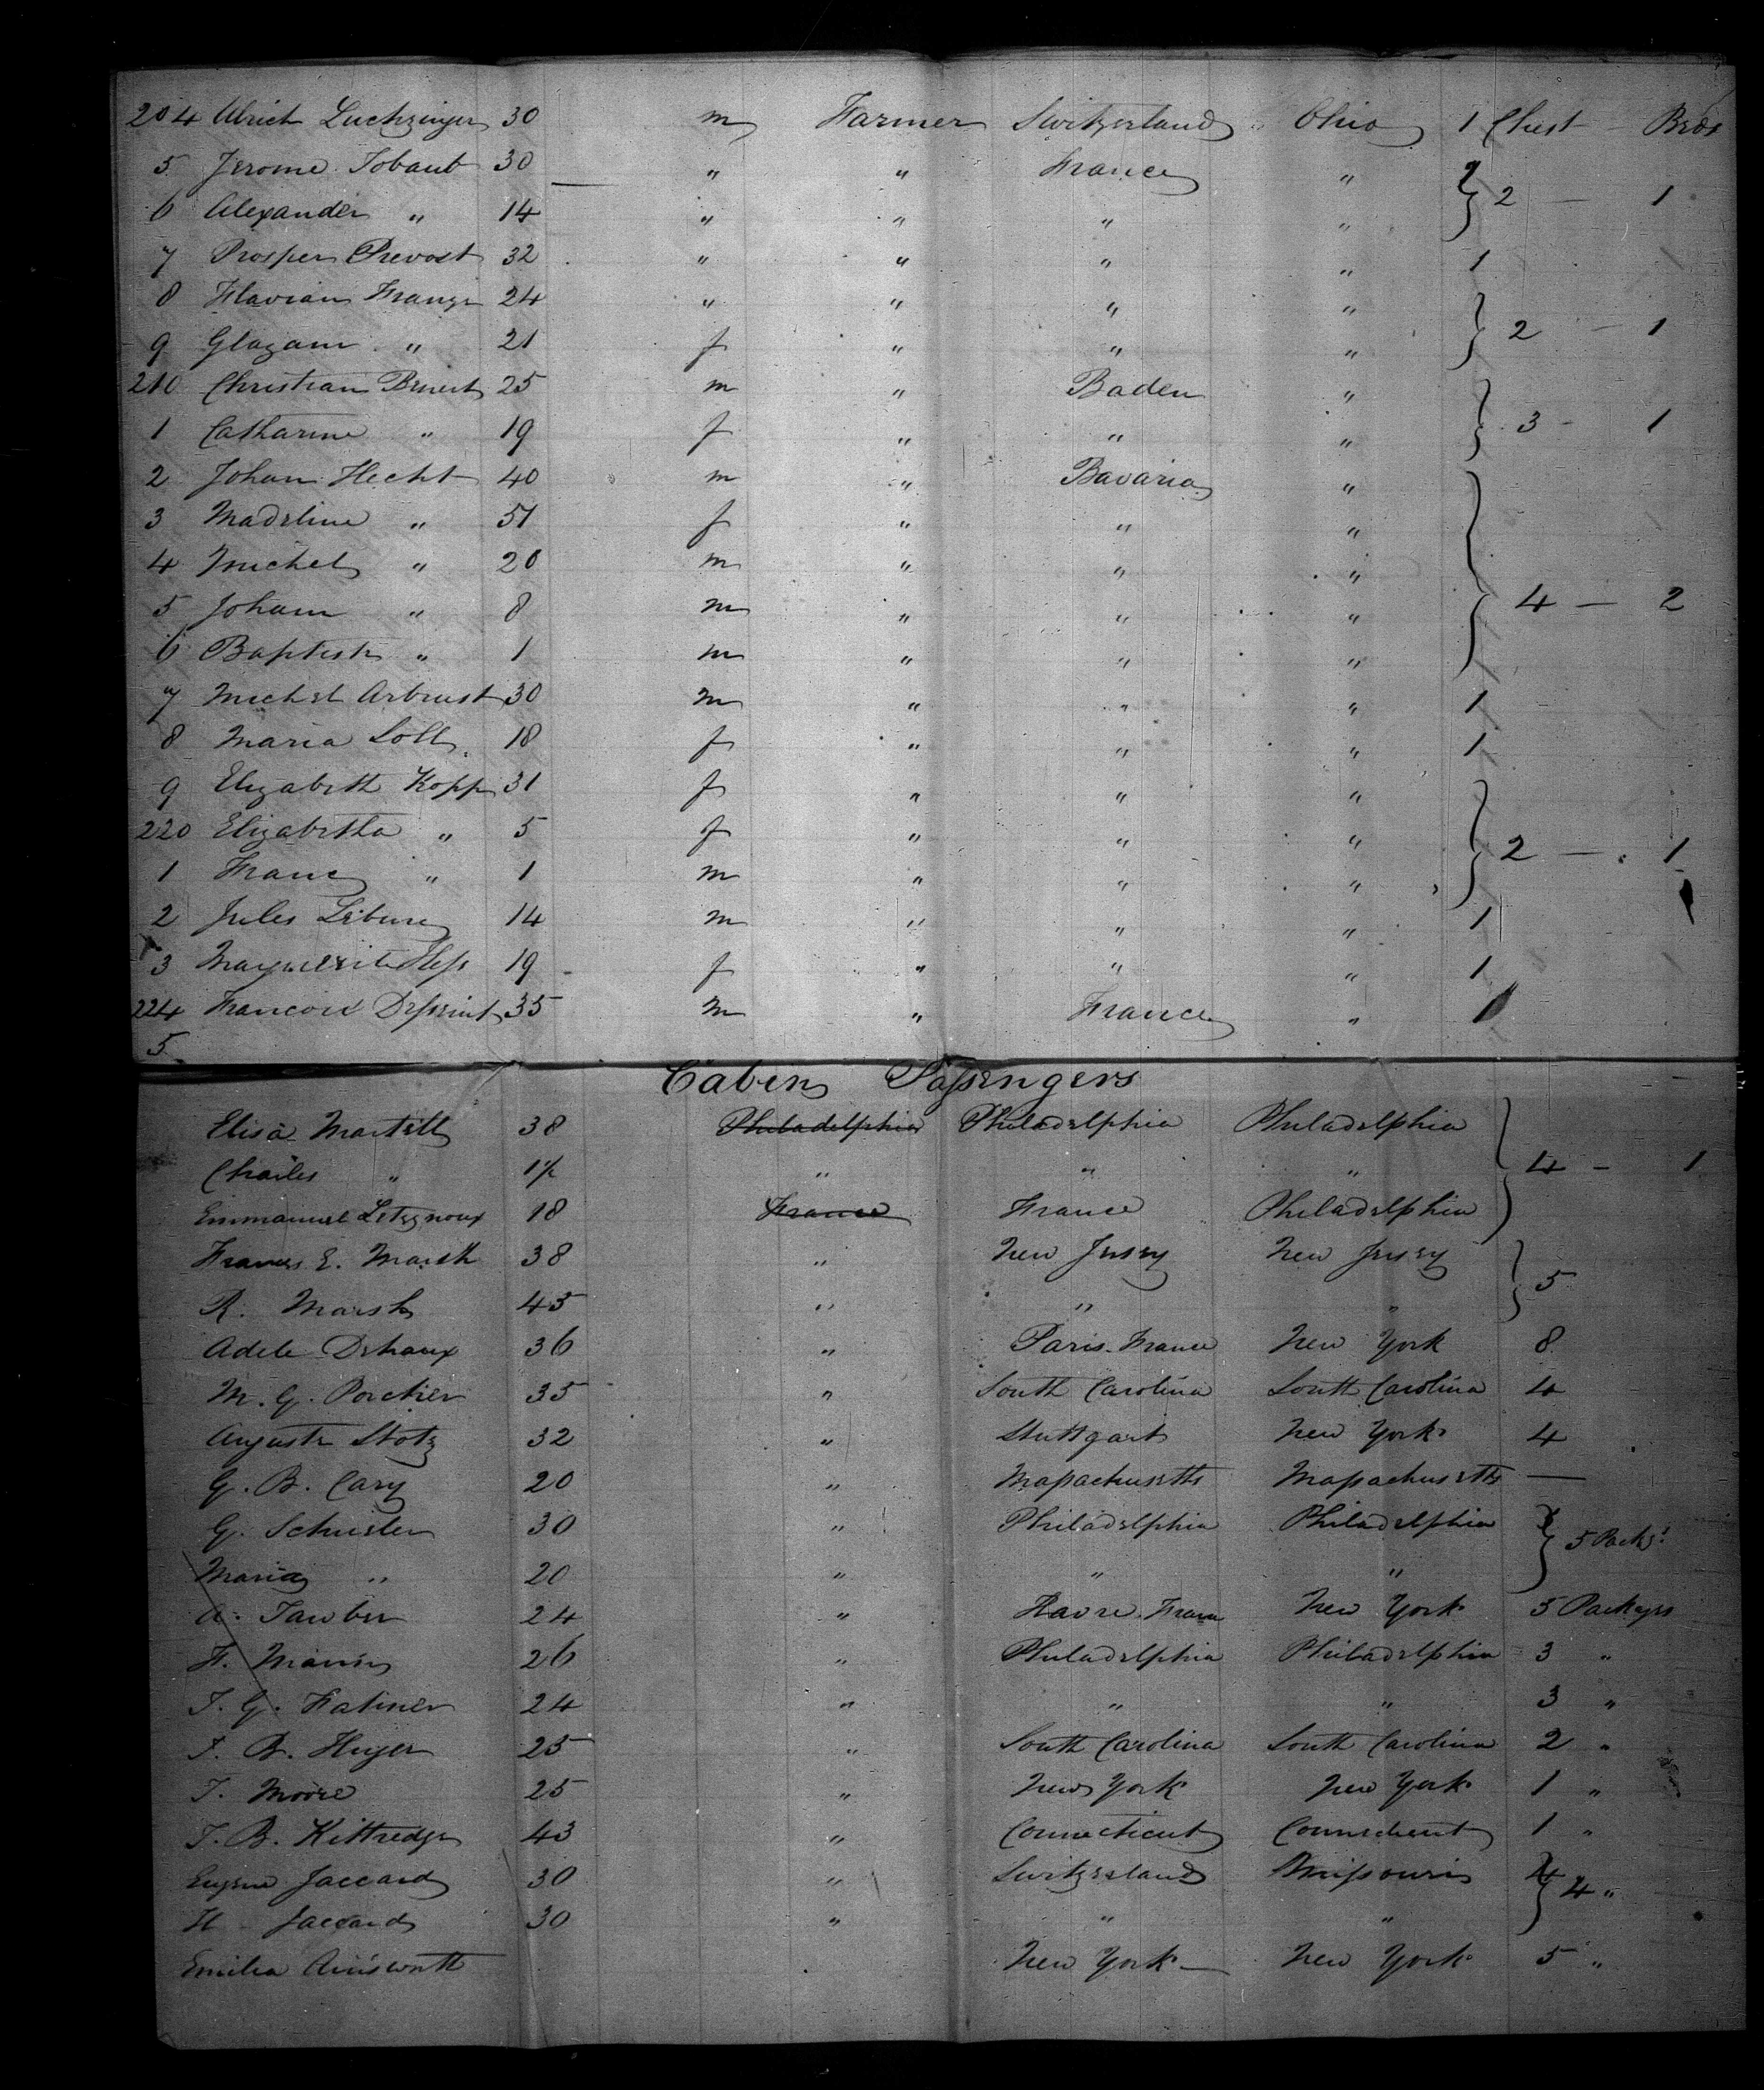 204 Ulrich Luchzinger 30 m Farmer Switzerland Ohio 1 Chest Beds
5 Jerome Tobaut 30 " " France "
6 Alexander " 14 " " " " } 2 — 1
7 Prosper Prevost 32 " " " " 1
8 Flavian 24 " " " "
9 " 21 f " " " } 2 — 1
210 Christian 25 m " Baden "
1 Catharine " 19 f " " " } 3 - 1
2 Johan Hecht 40 m " Bavaria "
3 Madeline " 51 f " " "
4 Michel " 20 m " " "
5 Johann " 8 m " " " } 4 — 2
6 Baptiste " 1 m " " "
7 Michel Arbrust 30 m " " " 1
8 Maria Soll 18 f " " " 1
9 Elizabeth Kopp 31 f " " "
220 Elizabetha " 5 f " " " } 2 — 1
1 Franc " 1 m " " "
2 Jules 14 m " " " 1
3 Marguerite Hess 19 f " " " 1
224 Francois 35 m " France " 1
5
Cabin Passengers
Elisa Martell 38 Philadelphia Philadelphia Philadelphia
Charles " 1½ " " " } 4 — 1
Emmanuel 18 France France Philadelphia
Frances E. Marsh 38 " New Jersey New Jersey
R. Marsh 45 " " " } 5
Adele Dehaux 36 " Paris France New York 8
M. G. Porcher 35 " South Carolina South Carolina 4
Auguste Stotz 32 " Stuttgart New York 4
G. B. Cary 20 " Massachusetts Massachusetts —
G. Schuster 30 " Philadelphia Philadelphia } 5 Packs
Maria " 20 " " "
A. Tauber 24 " Havre France New York 5 Packages
F. 26 " Philadelphia Philadelphia 3 "
T. G. 24 " " " 3 "
T. B. Huger 25 " South Carolina South Carolina 2 "
T. Moore 25 " New York New York 1 "
T. B. Kittredge 43 " Connecticut Connecticut 1 "
Eugene Jaccard 30 " Switzerland Missouri } 4 "
H Jaccard 30 " " "
Emilia Ainsworth New York — New York 5 "